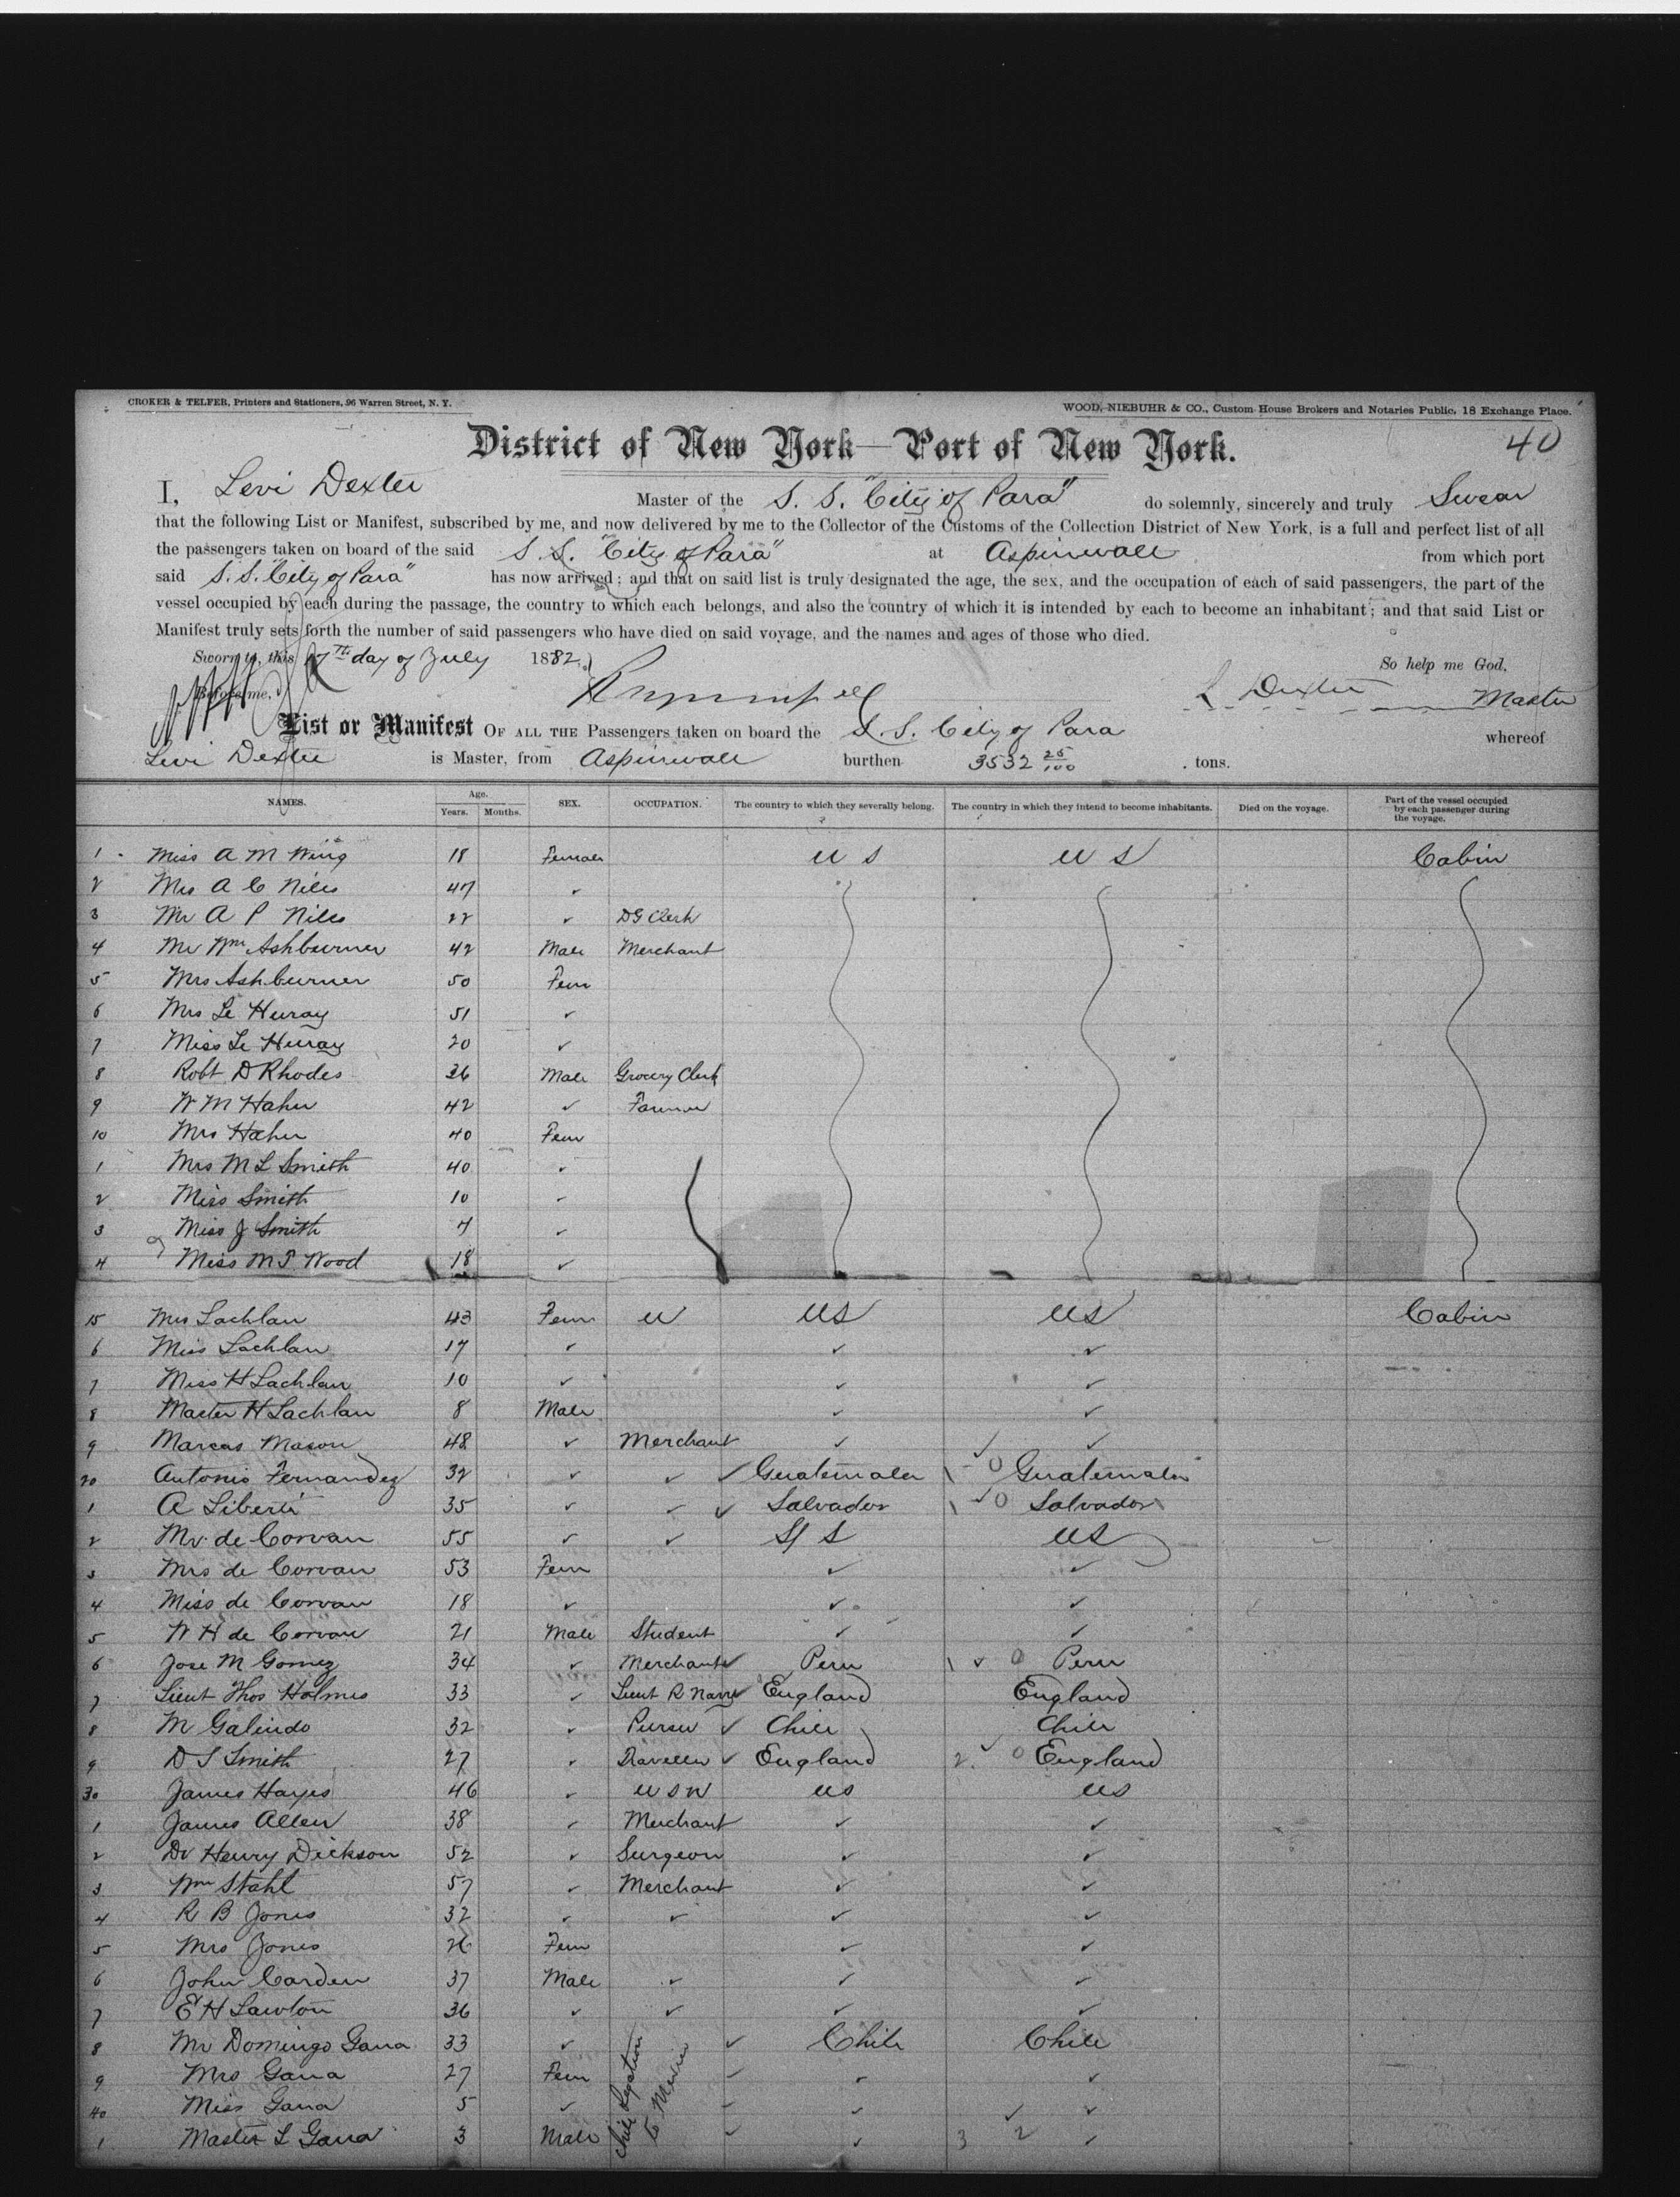 CROKER & TELFER, Printers and Stationers, 96 Warren Street, N. Y.
WOOD, NIEBUHR & CO., Custom House Brokers and Notaries Public, 18 Exchange Place.
District of New York—Port of New York.
40
I, Levi Dexter Master of the S. S. "City of Para" do solemnly, sincerely and truly Swear
that the following List or Manifest, subscribed by me, and now delivered by me to the Collector of the Customs of the Collection District of New York, is a full and perfect list of all
the passengers taken on board of the said S. S. "City of Para" at Aspinwall from which port
said S. S. "City of Para" has now arrived; and that on said list is truly designated the age, the sex, and the occupation of each of said passengers, the part of the
vessel occupied by each during the passage, the country to which each belongs, and also the country of which it is intended by each to become an inhabitant; and that said List or
Manifest truly sets forth the number of said passengers who have died on said voyage, and the names and ages of those who died.
Sworn to, this 17th day of July 1882,
So help me God,
Before me,
L Dexter Master
List or Manifest OF ALL THE Passengers taken on board the S. S. City of Para whereof
Levi Dexter is Master, from Aspinwall burthen 3532 25/100 tons.
NAMES. Age. Years. Months. SEX. OCCUPATION. The country to which they severally belong. The country in which they intend to become inhabitants. Died on the voyage. Part of the vessel occupied by each passenger during the voyage.
1 Miss A M Wing 18 Female U S U S Cabin
2 Mrs A C Niles 47 ✓
3 Mr A P Niles 22 ✓ DG Clerk
4 Mr Wm Ashburner 42 Male Merchant
5 Mrs Ashburner 50 Fem
6 Mrs Le Huray 51 ✓
7 Miss Le Huray 20 ✓
8 Robt D Rhodes 36 Male Grocery Clerk
9 W M Hahn 42 ✓ Farmer
10 Mrs Hahn 40 Fem
1 Mrs M L Smith 40 ✓
2 Miss Smith 10 ✓
3 Miss J Smith 7 ✓
4 Miss M T Wood 18 ✓
15 Mrs Lachlan 43 Fem U US US Cabin
6 Miss Lachlan 17 ✓ ✓ ✓
7 Miss H Lachlan 10 ✓ ✓ ✓
8 Master H Lachlan 8 Male ✓ ✓
9 Marcas Mason 48 ✓ Merchant ✓ ✓
20 Antonio Fernandez 32 ✓ ✓ ✓ Guatemala Guatemala
1 A Liberti 35 ✓ ✓ ✓ Salvador Salvador
2 Mr de Corvan 55 ✓ ✓ US
3 Mrs de Corvan 53 Fem ✓ ✓
4 Miss de Corvan 18 ✓ ✓ ✓
5 W H de Corvan 21 Male Student ✓ ✓
6 Jose M Gomez 34 ✓ Merchant ✓ Peru Peru
7 Lieut Thos Holmes 33 ✓ Lieut R Navy ✓ England England
8 M Galindo 32 ✓ Purser ✓ Chili Chili
9 D S Smith 27 ✓ Traveller ✓ England 2 England
30 James Hayes 46 ✓ U S N US US
1 James Allen 38 ✓ Merchant ✓ ✓
2 Dr Henry Dickson 52 ✓ Surgeon ✓ ✓
3 Wm Stahl 57 ✓ Merchant ✓ ✓
4 R B Jones 32 ✓ ✓ ✓ ✓
5 Mrs Jones 26 Fem ✓ ✓
6 John Carden 37 Male ✓ ✓ ✓
7 E H Lawton 36 ✓ ✓ ✓ ✓
8 Mr Domingo Gana 33 ✓ Chili Legation to Mexico ✓ Chile Chile
9 Mrs Gana 27 Fem ✓ ✓
40 Miss Gana 5 ✓ ✓ ✓
1 Master L Gana 3 Male ✓ 3 2 ✓